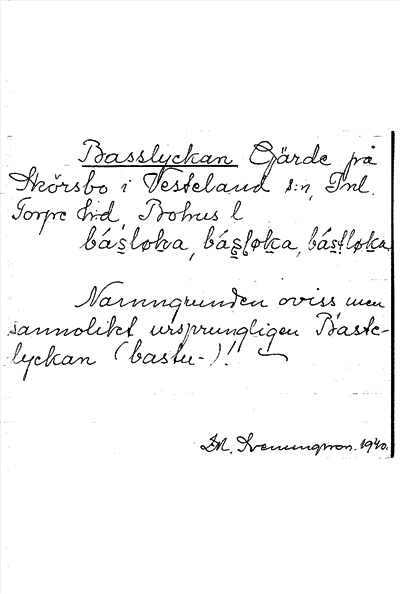 Basslyckan Gärde på
Skörsbo i Vesteland s:n, Inl.
Torpe h:d, Bohus l
básløka, básløka, bástløka.
Namngrunden oviss men
sannolikt ursprungligen Báste-
lyckan (bastu-)!
M. Svenungsson. 1940.